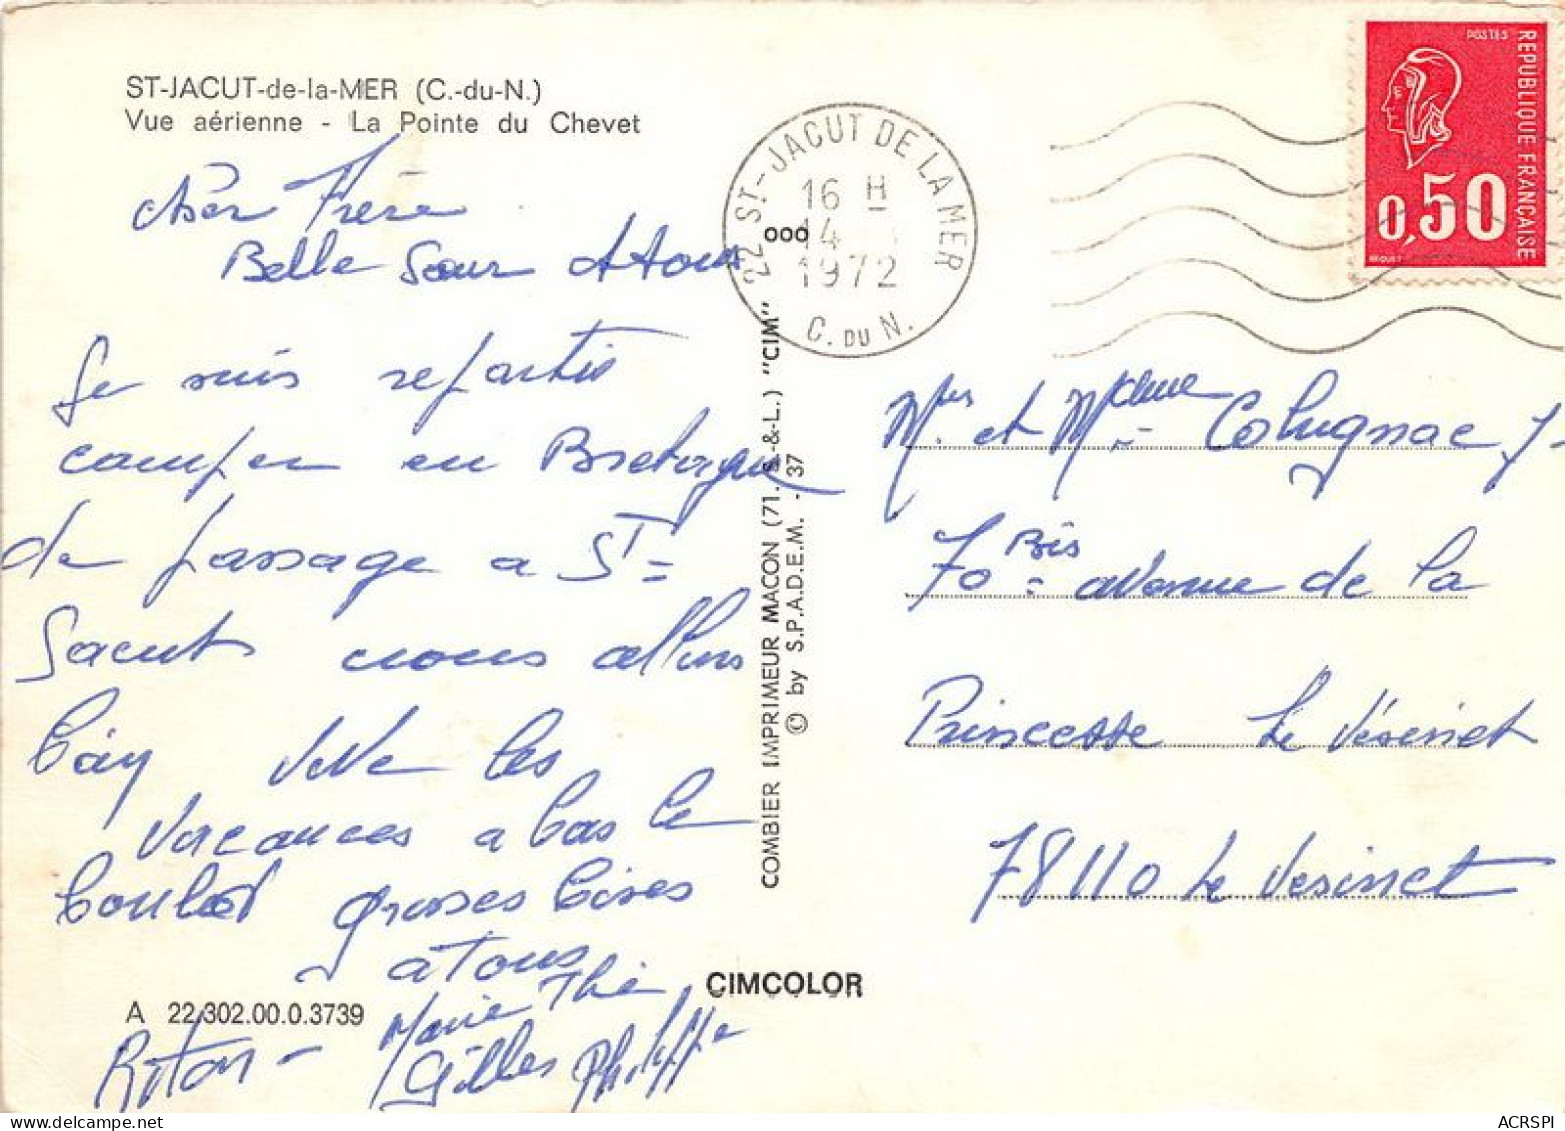 ST-JACUT-de-la-MER (C.-du-N.)
Vue aérienne - La Pointe du Chevet
cher Frère
Belle Sœur et tous
Je suis repartie
camper en Bretagne
de passage a St=
Jacut nous allons
bain vive les
vacances a bas le
boulot grosses bises
a tous
Marie Thé
Gilles Philippe
A 22.302.00.0.3739
COMBIER IMPRIMEUR MACON (71. S.-&-L.) "CIM"
© by S.P.A.D.E.M. - 37
CIMCOLOR
22 ST-JACUT DE LA MER
16 H
14
1972
C. DU N.
000
POSTES
REPUBLIQUE FRANÇAISE
0,50
BEQUET
et Colugnac J-
70 Bis= avenue de la
Princesse Le Vésinet
78110 Le Vesinet
ACRSPI